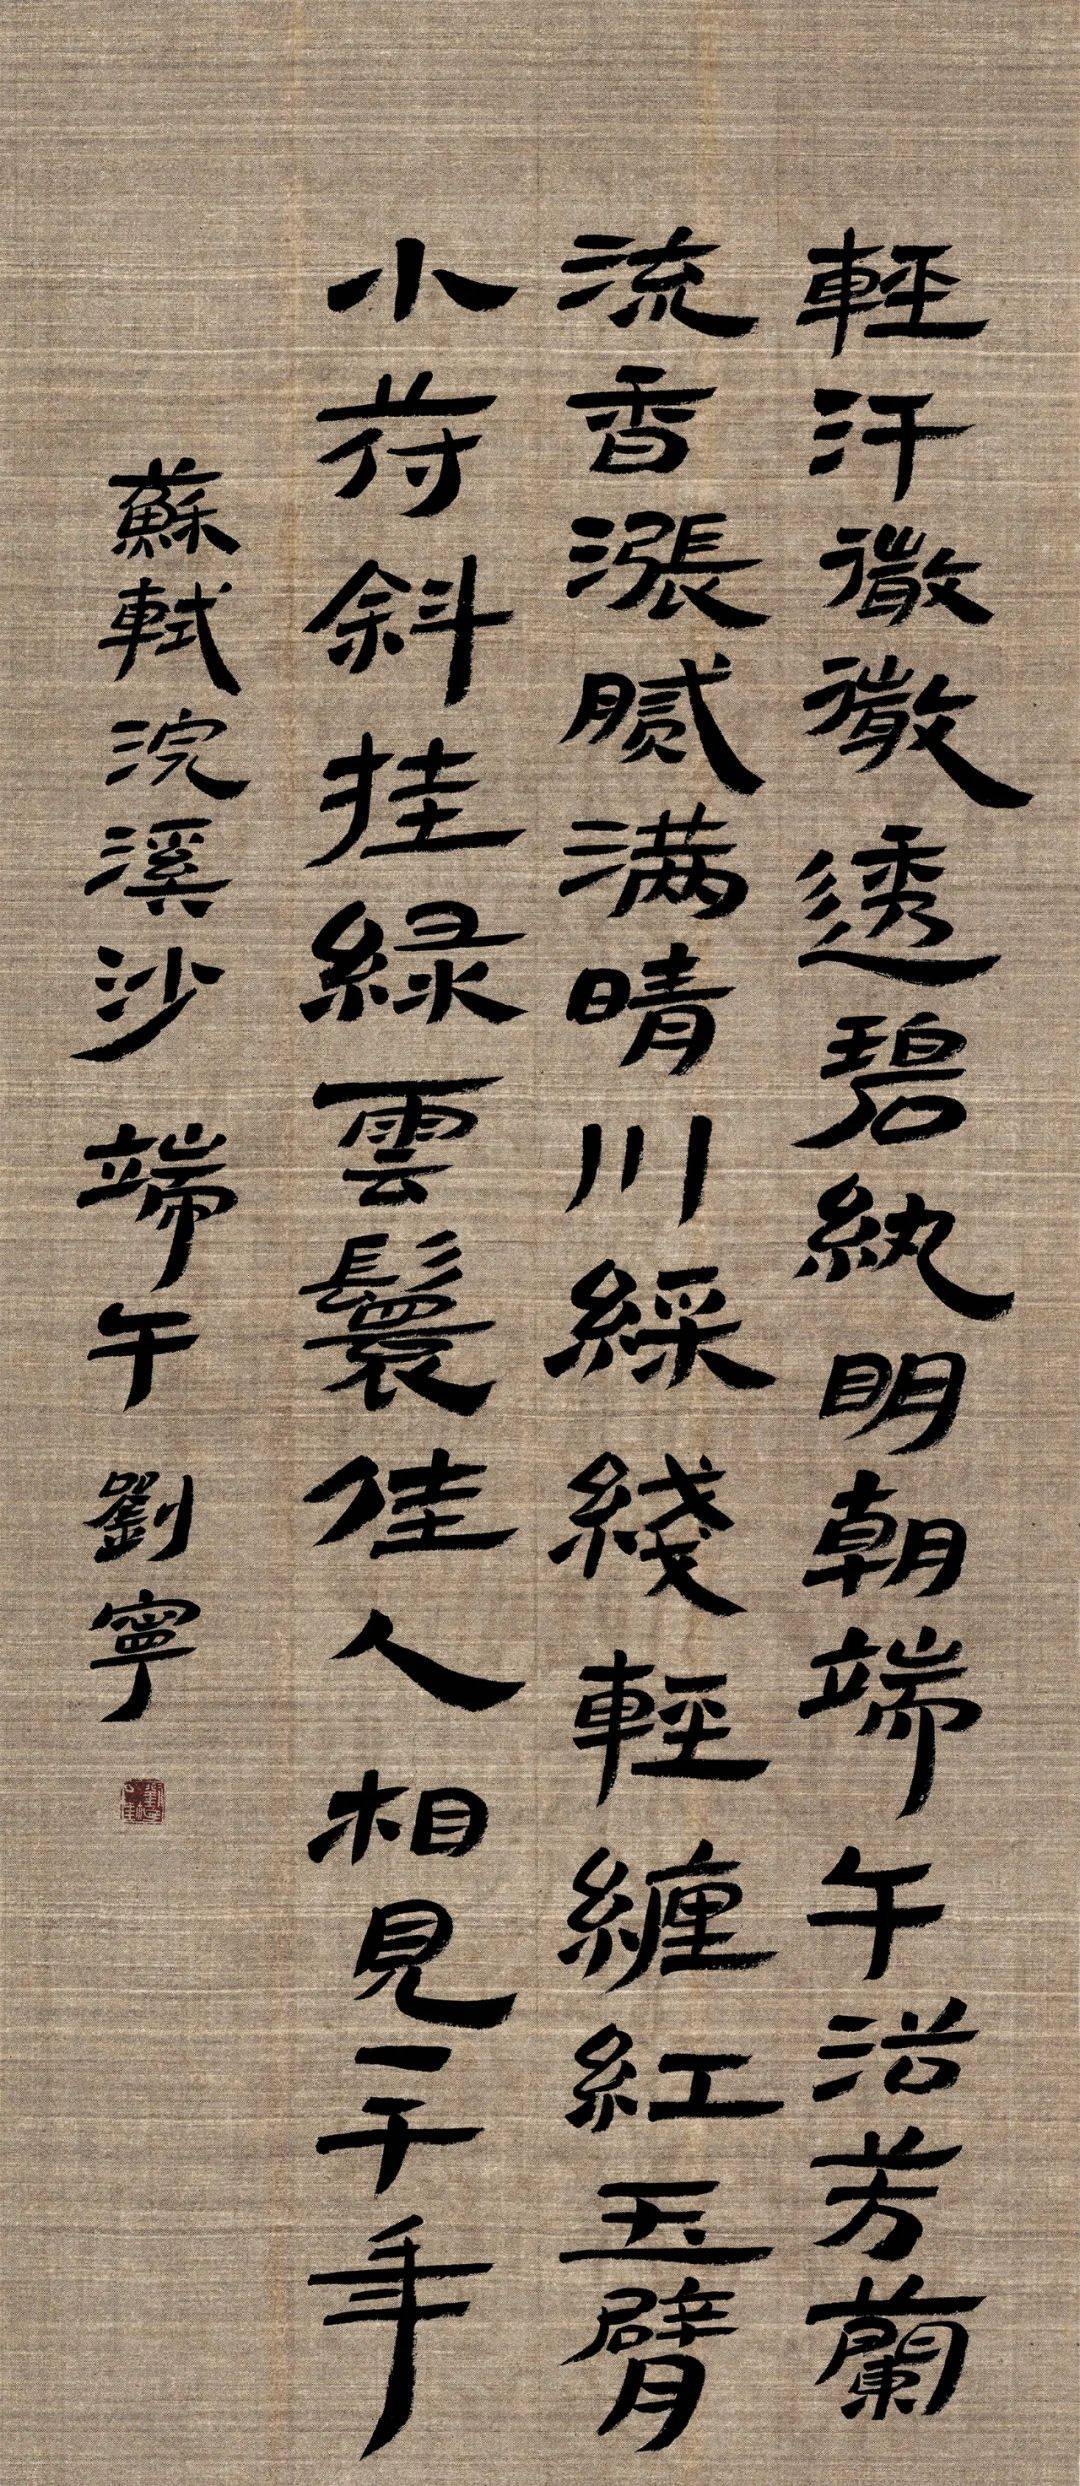 輕汗微微透碧紈明朝端午浴芳蘭
流香漲膩满晴川綵綫輕纏紅玉臂
小符斜挂緑雲鬟佳人相見一千年
蘇軾浣溪沙 端午 劉寧